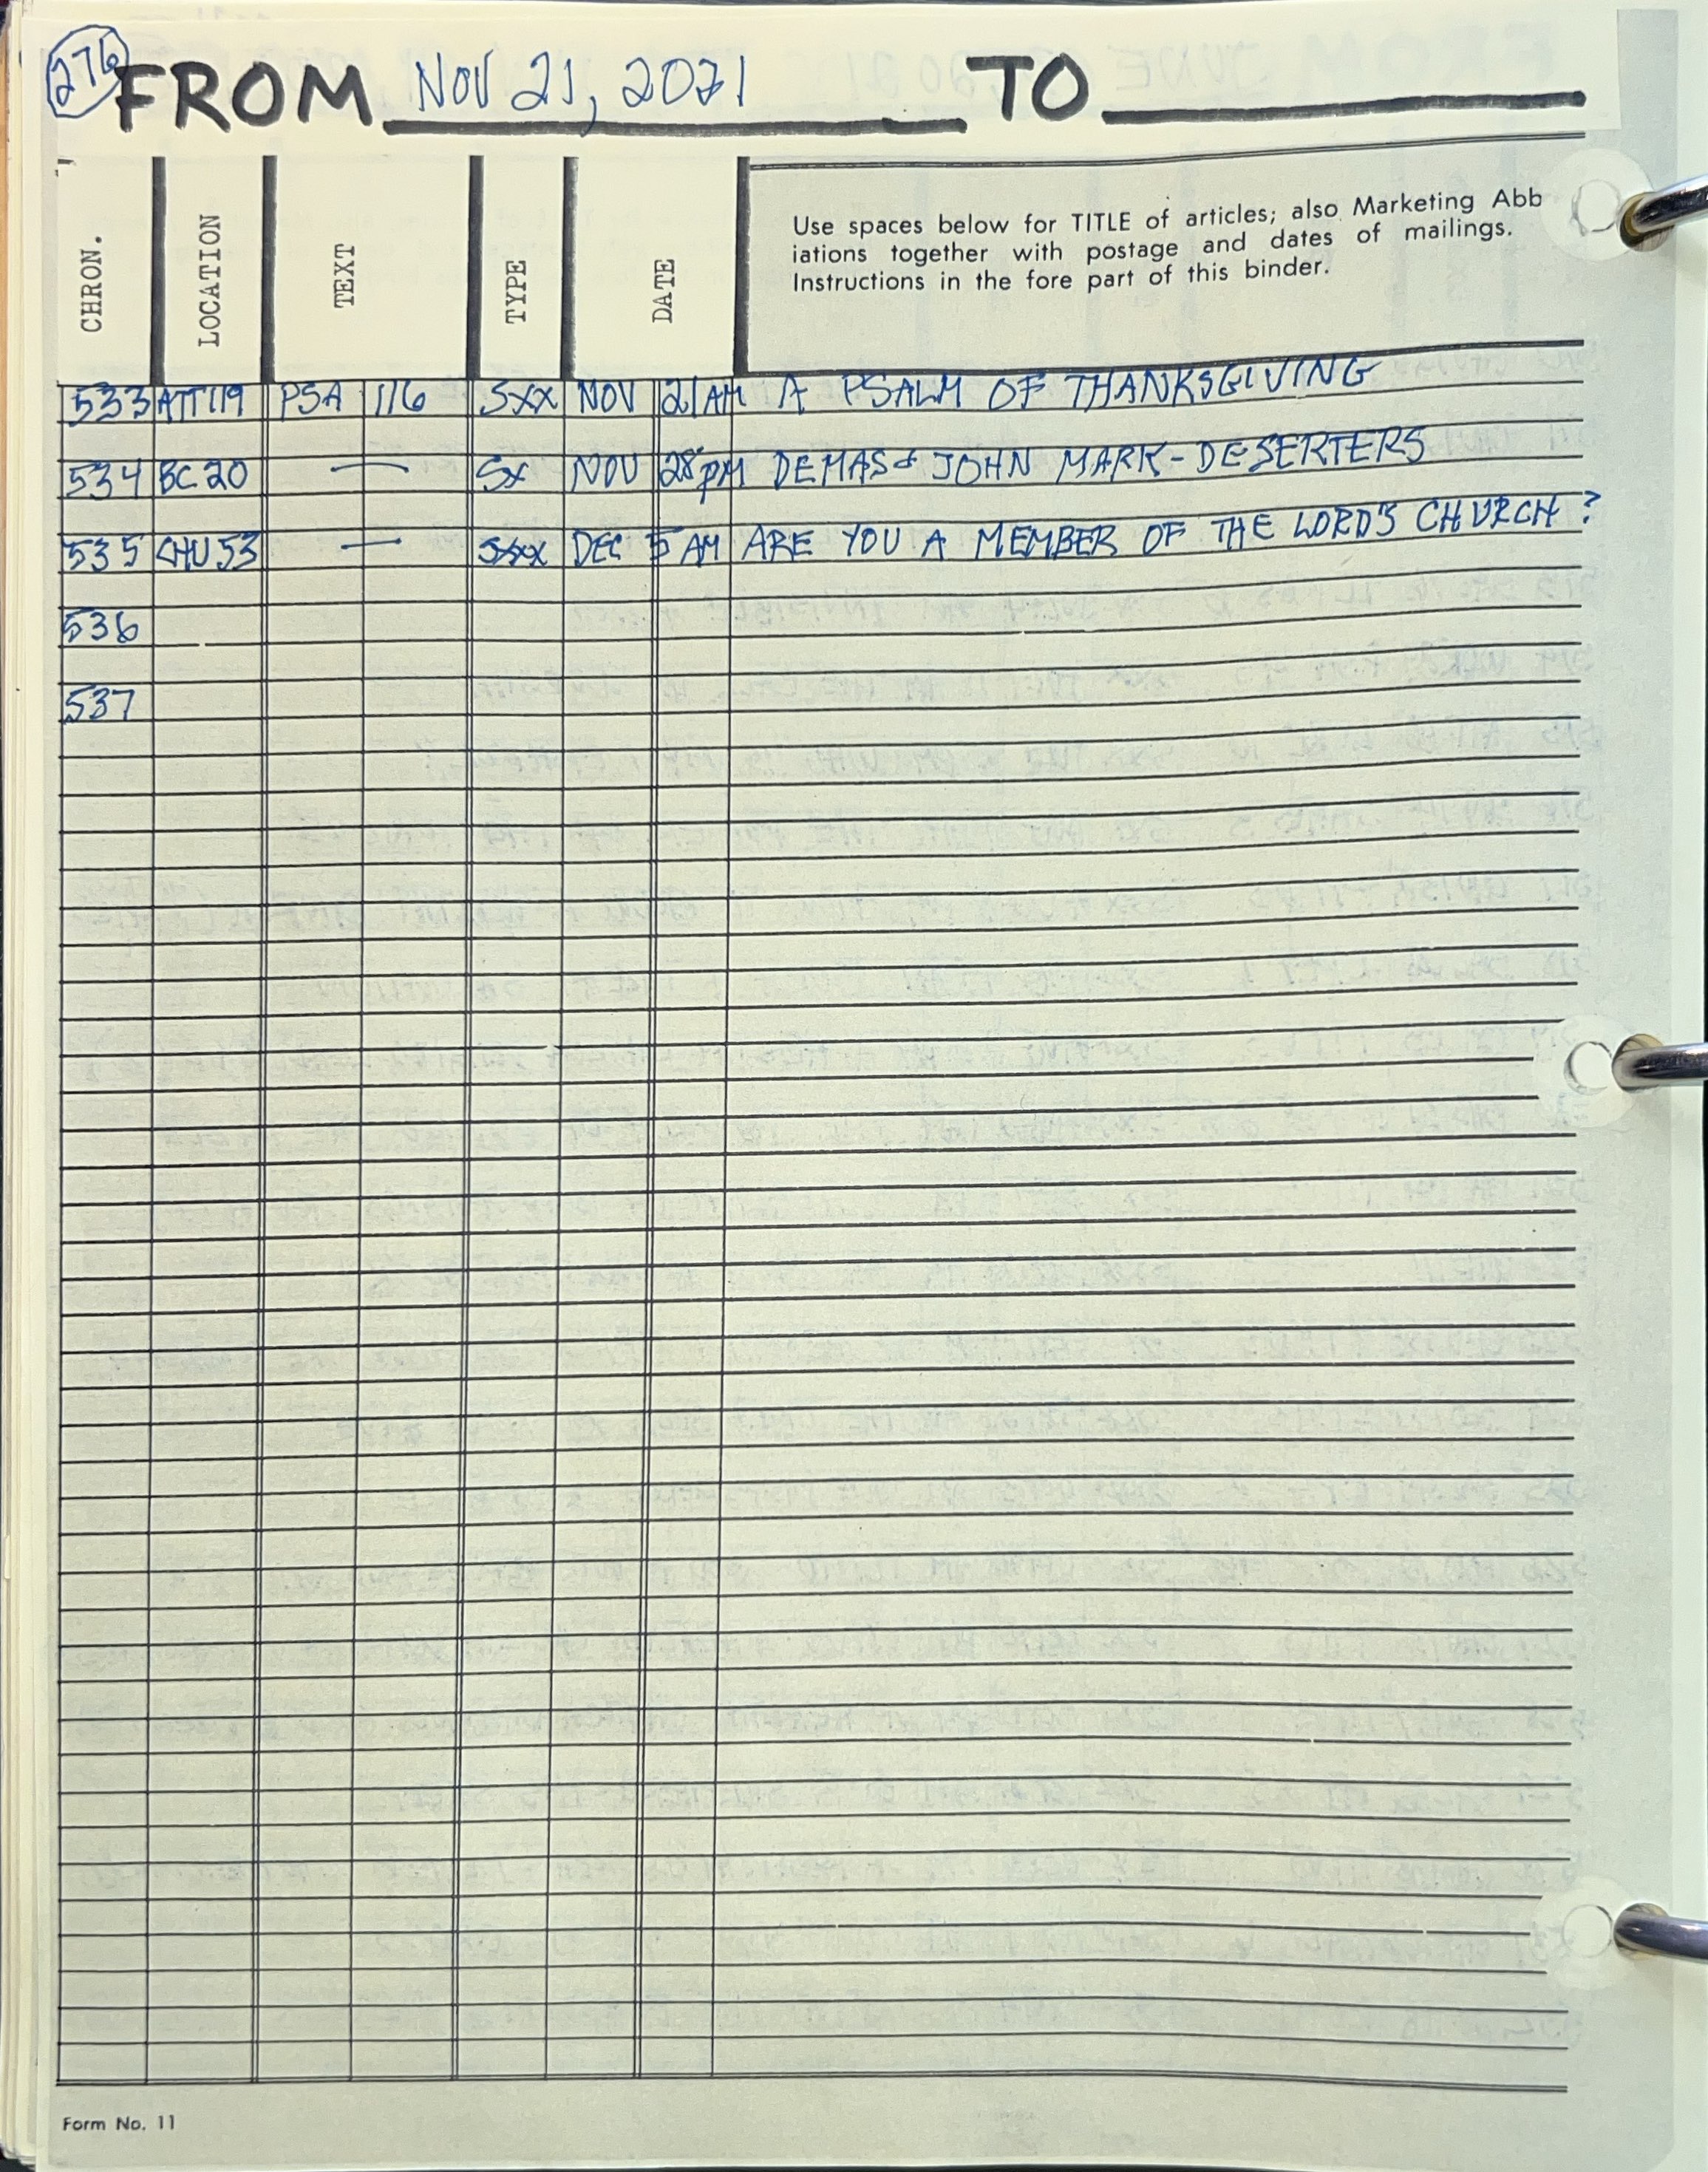 276
FROM NOV 21, 2021 TO
CHRON. LOCATION TEXT TYPE DATE
Use spaces below for TITLE of articles; also Marketing Abb
iations together with postage and dates of mailings.
Instructions in the fore part of this binder.
533 ATT119 PSA 116 SXX NOV 21 AM A PSALM OF THANKSGIVING
534 BC 20 — SX NOV 28 PM DEMAS & JOHN MARK - DESERTERS
535 CHU 53 — SXX DEC 5 AM ARE YOU A MEMBER OF THE LORD'S CHURCH?
536
537
Form No. 11